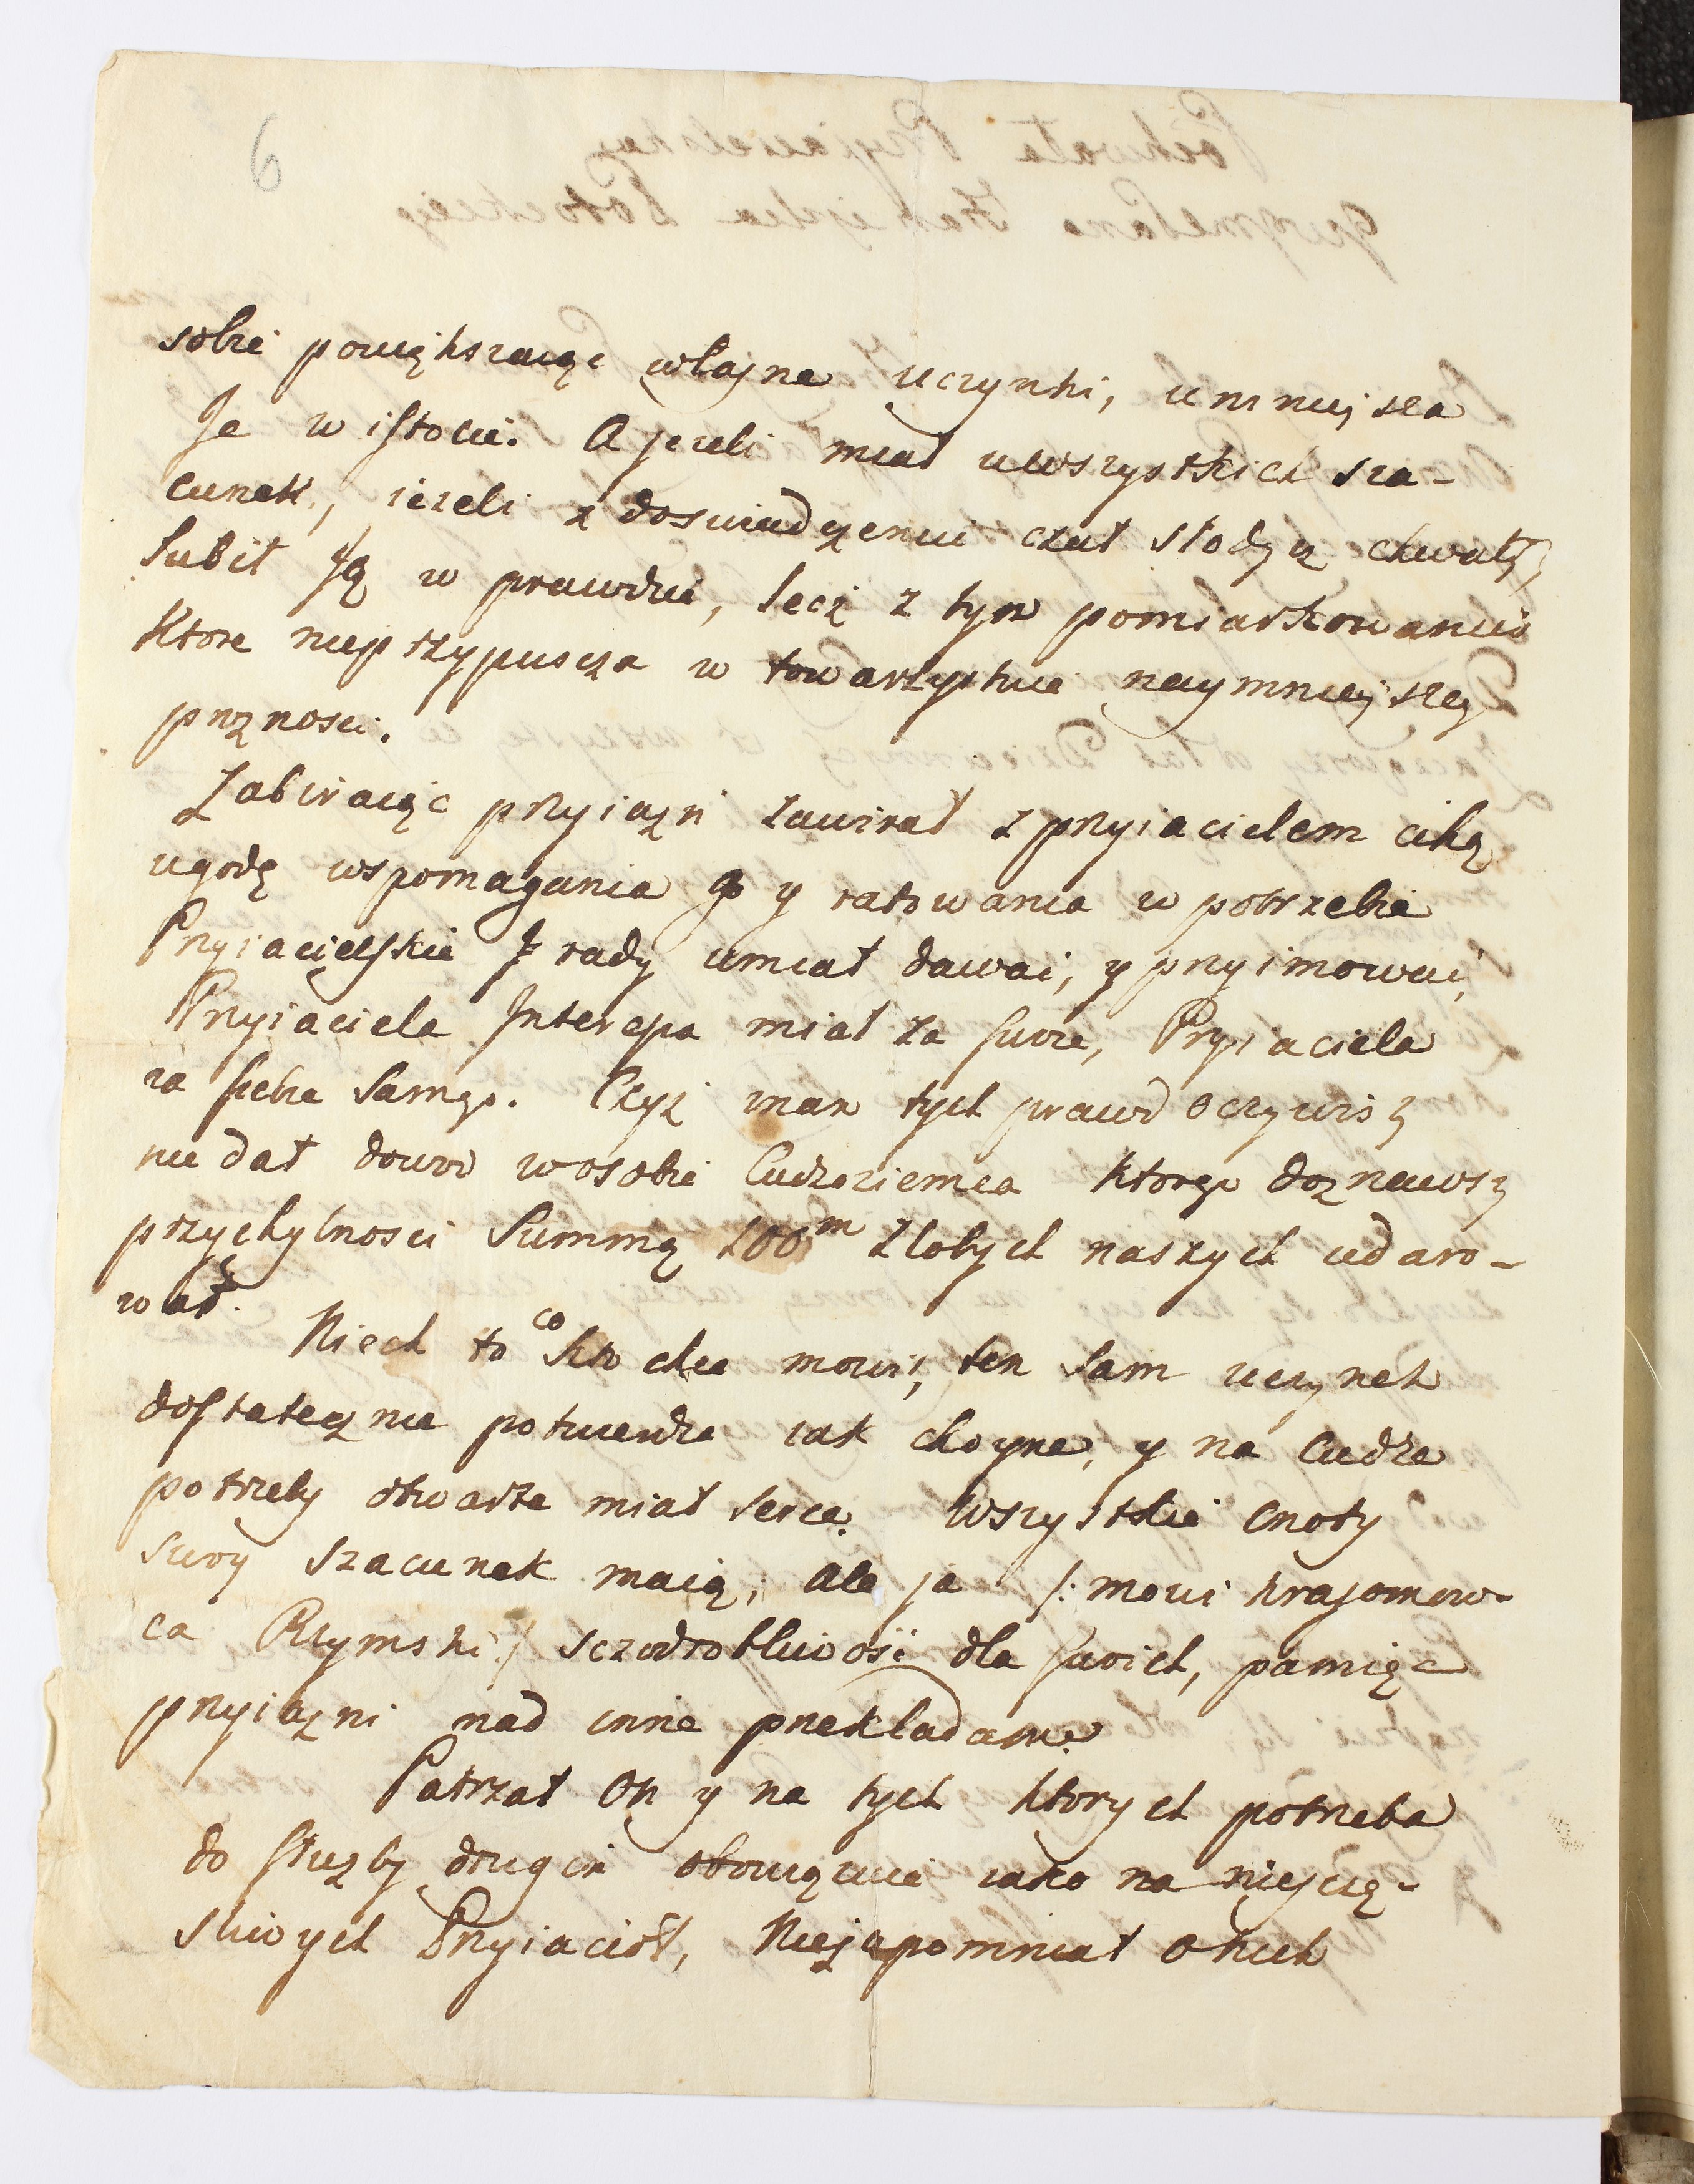 6
sobie powiększaiąc własne uczynki, umnieysza
Je w istocie. A jezeli miał u wszystkich sza-
cunek, iezeli z doswiadczenia czuł słodycz chwały,
lubił Ją w prawdzie, lecz z tym pomiarkowaniem
ktore nieprzypuscza w towarzystwie naymnieyszey
prznosci.
Zabiraiąc przyiazn zawirał z przyiacielem cihą
ugodę wspomagania y ratowania w potrzebie
Przyiacielskie rady umiał dawać, y przyimować,
Przyiaciela Interessa miał za swoie, Przyiaciela
za siebie samego. Czyż mam tych prawd oczywisty
nie dał dowod w osobie Cudzoziemca ktorego doznawszy
przychylnosci Summą 100m Złotych naszych udaro-
wał. Niech to co kto chce mowi, ten sam uczynek
dostatecznie potwierdza iak choyne, y na cudze
potrzeby otwarte miał serce. Wszystkie cnoty
swoy szacunek maią, ale ja /: mowi krasomow-
ca Rzymski :/ sczodrobliwość dla swoich, pamięc
przyiazni nad inne przekładam.
Patrzał On y na tych ktorych potrzeba
do służby drugim obowiązuie iako na niesczę-
sliwych Przyiacioł, Niezapomniał o nich